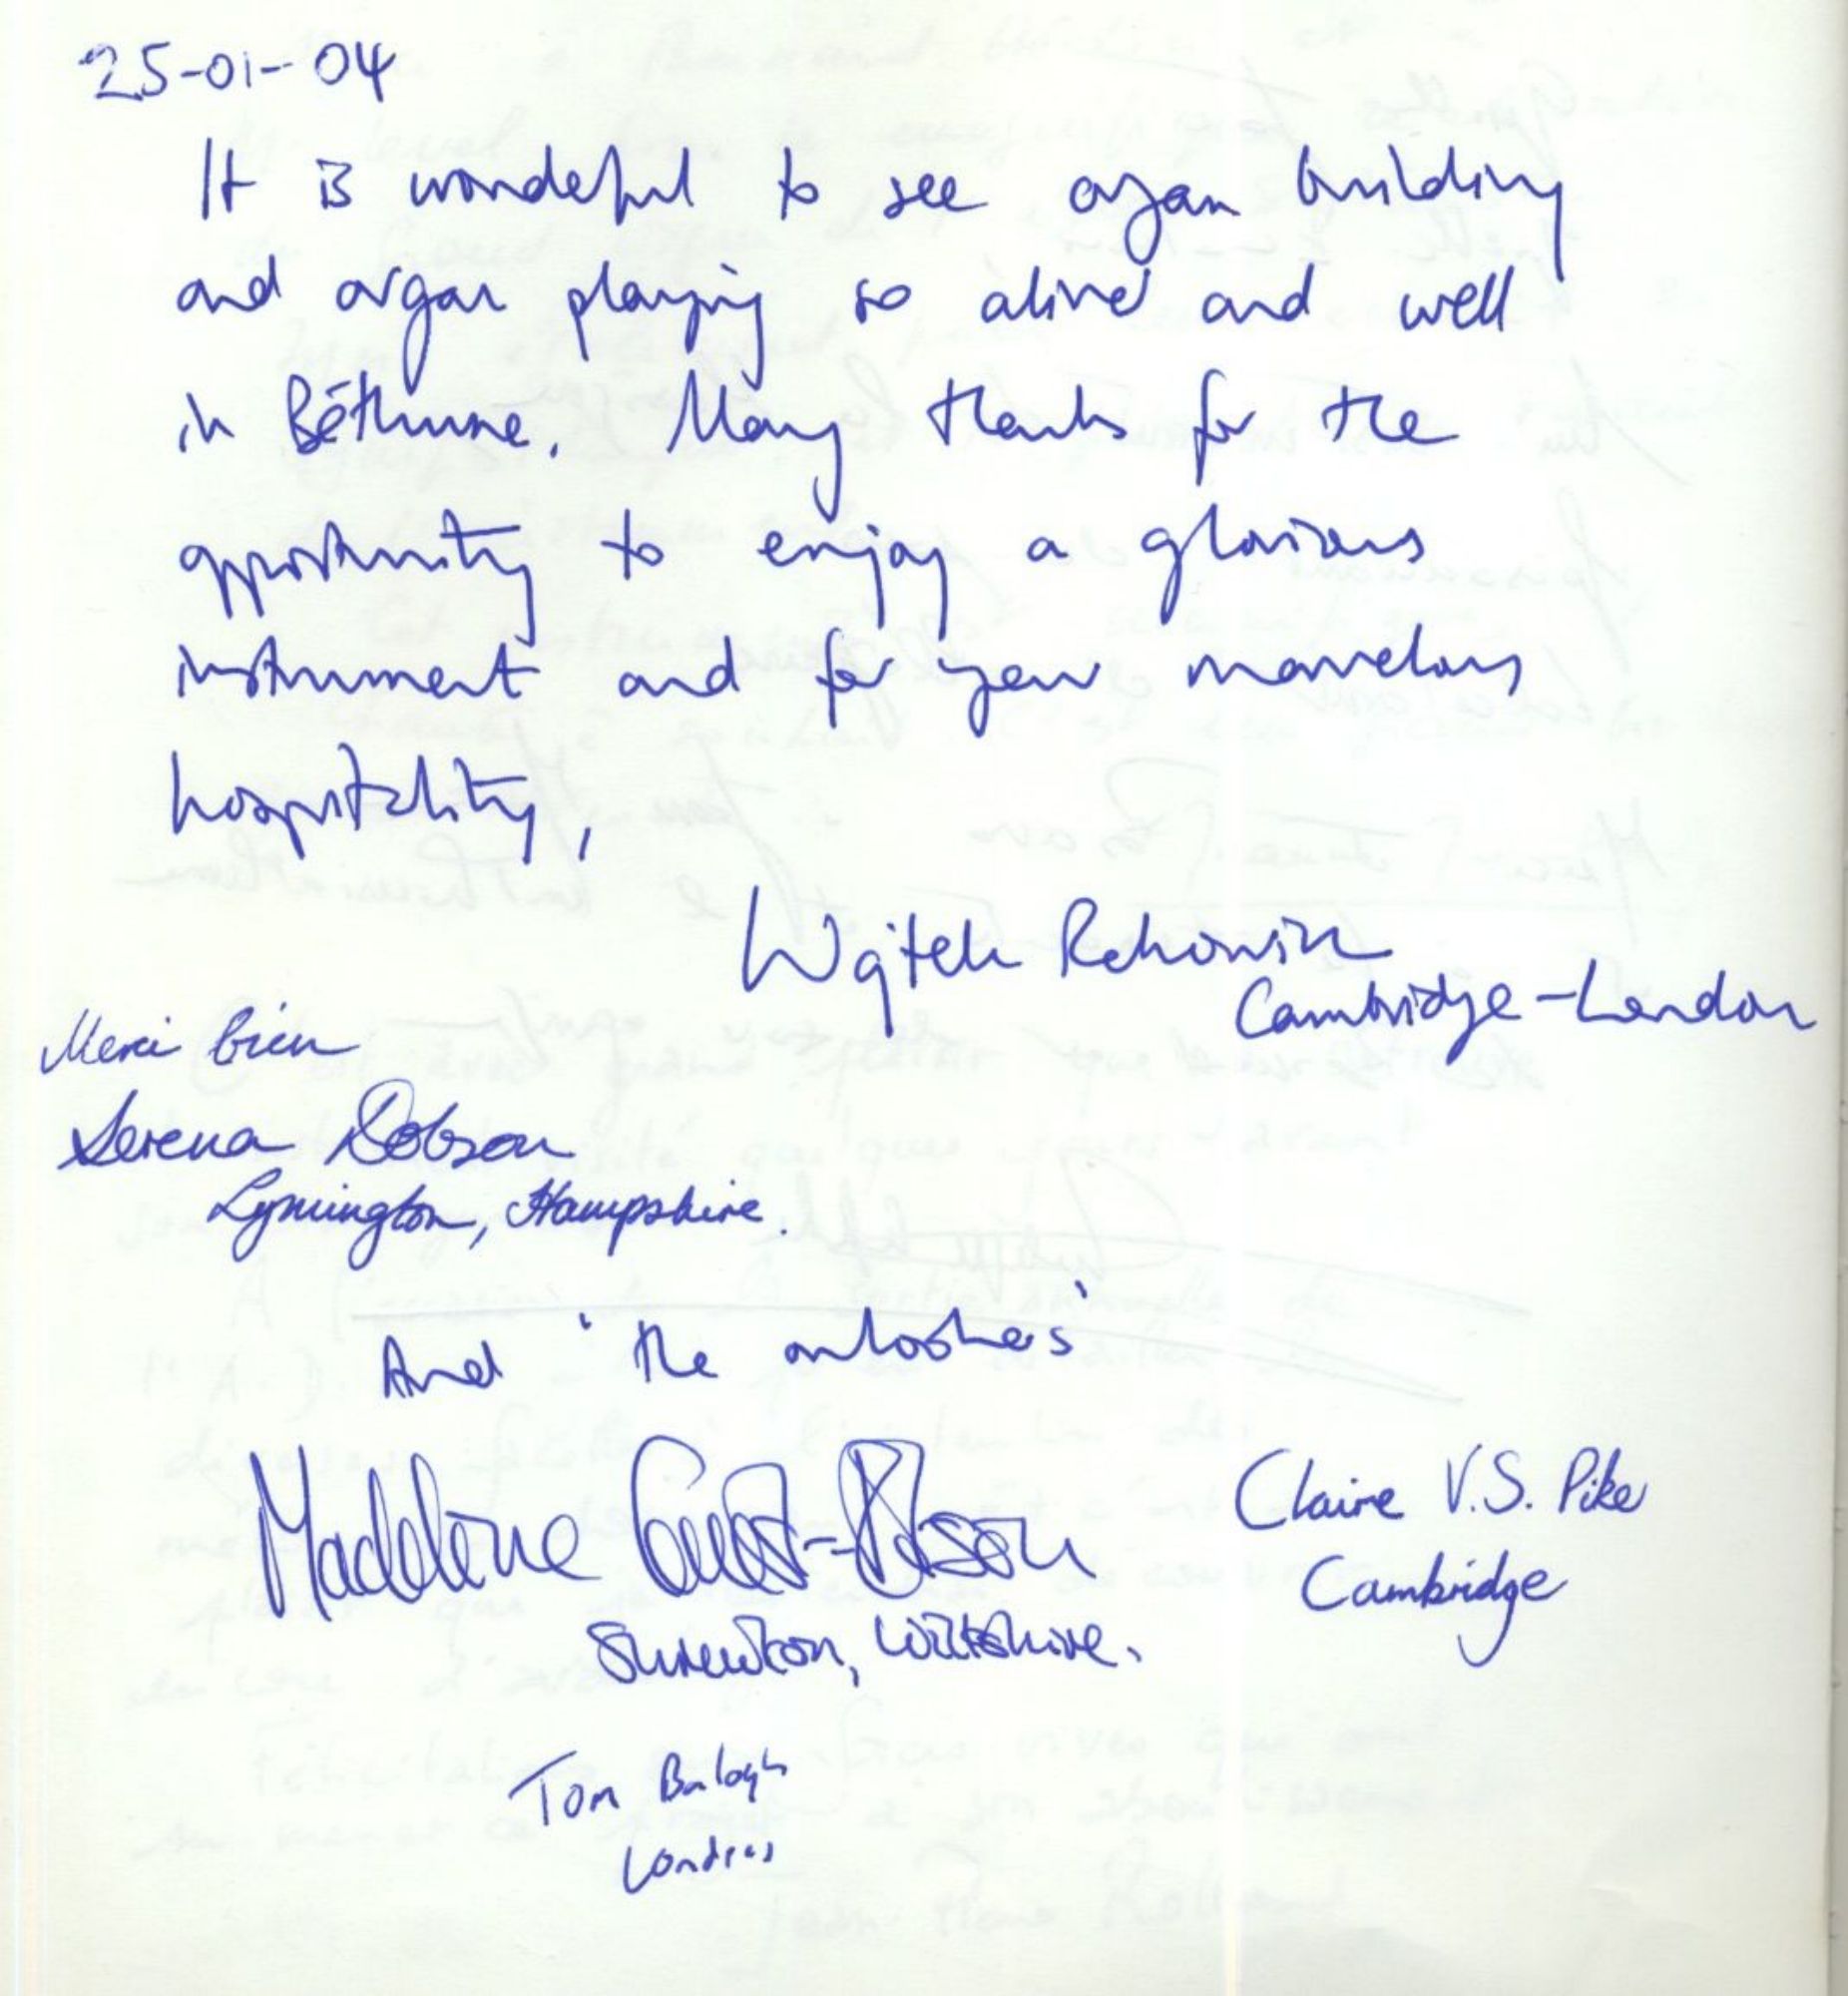 25-01-04
It is wonderful to see organ building
and organ playing so alive and well
in Béthune. Many thanks for the
opportunity to enjoy a glorious
instrument and for your marvelous
hospitality,
Wojtek
Cambridge-London
Merci bien
Serena Dobson
Lymington, Hampshire.
And 'the onlookers'
Madeleine Guest-Dobson
Claire V.S. Pike
Cambridge
Shrewton, Wiltshire.
Tom Balogh
Londres